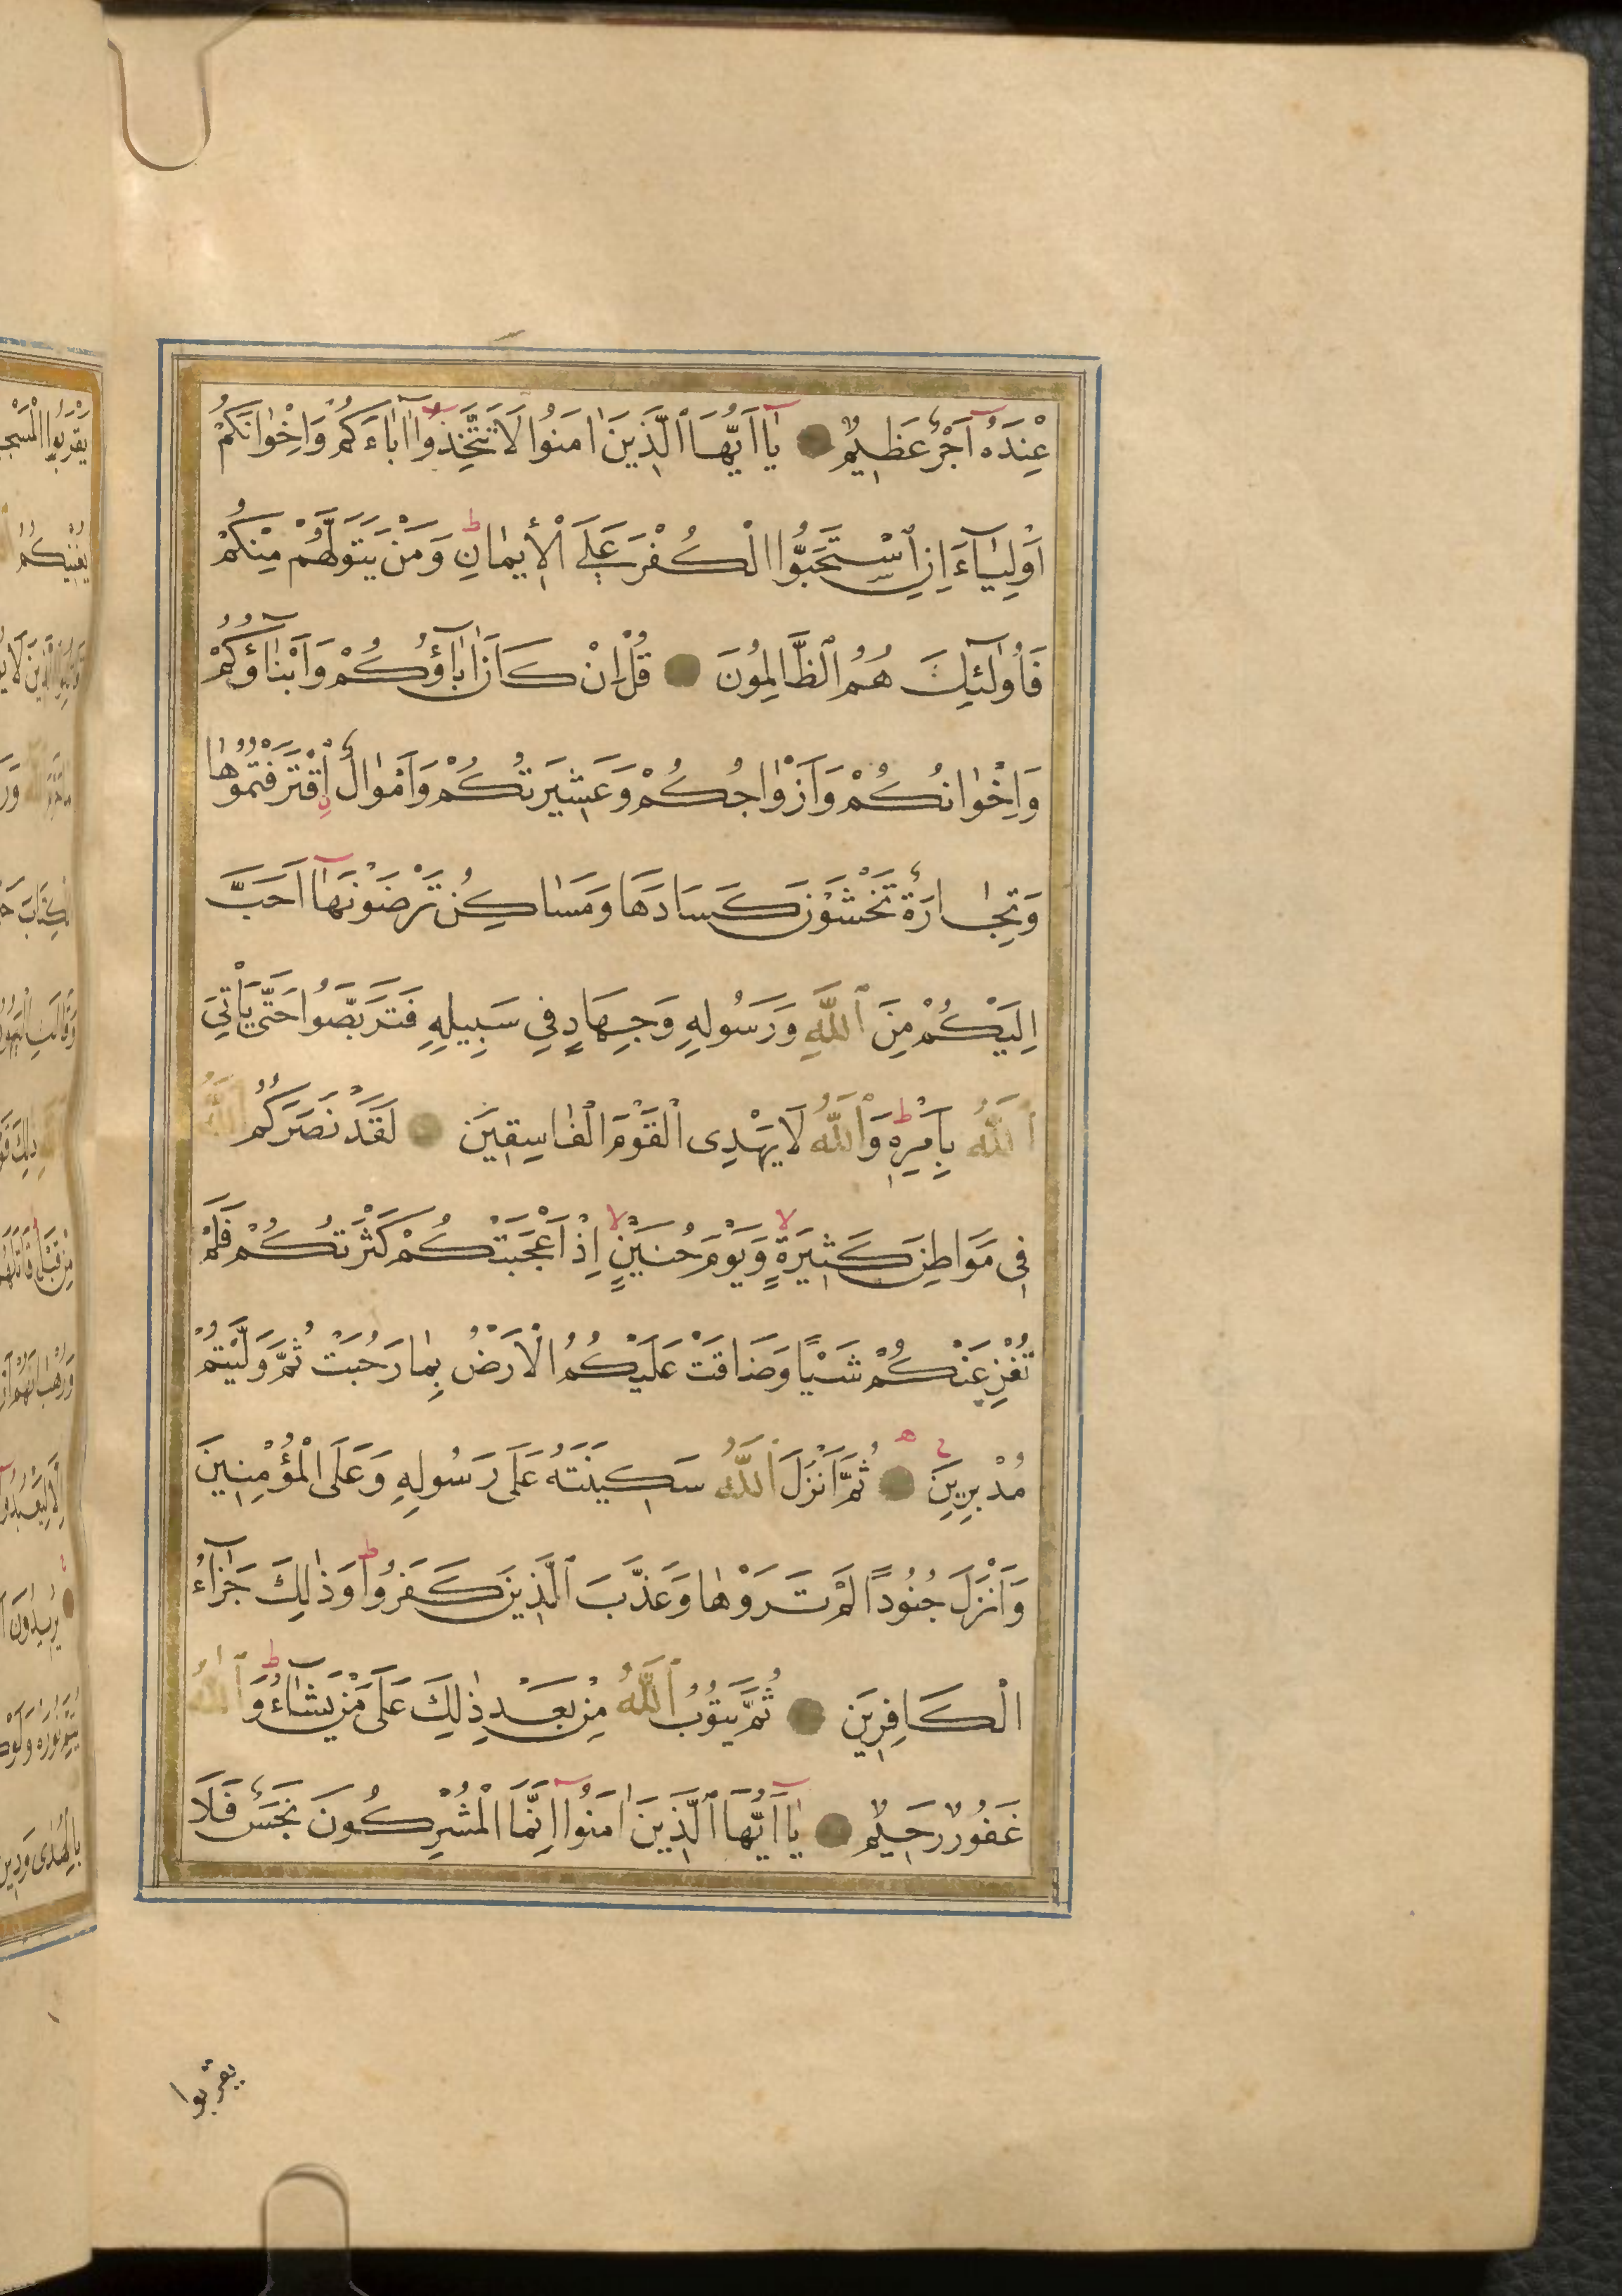 عِنْدَهُ اَجْرٌ عَظِيمٌ يَا اَيُّهَا الَّذِينَ اٰمَنُوا لَا تَتَّخِذُوا اٰبَاءَكُمْ وَاِخْوَانَكُمْ
اَوْلِيَاءَ اِنِ اسْتَحَبُّوا الْكُفْرَ عَلَى الْاِيمَانِ وَمَنْ يَتَوَلَّهُمْ مِنْكُمْ
فَاُولٰئِكَ هُمُ الظَّالِمُونَ قُلْ اِنْ كَانَ اٰبَاؤُكُمْ وَاَبْنَاؤُكُمْ
وَاِخْوَانُكُمْ وَاَزْوَاجُكُمْ وَعَشِيرَتُكُمْ وَاَمْوَالٌ اقْتَرَفْتُمُوهَا
وَتِجَارَةٌ تَخْشَوْنَ كَسَادَهَا وَمَسَاكِنُ تَرْضَوْنَهَا اَحَبَّ
اِلَيْكُمْ مِنَ اللّٰهِ وَرَسُولِهِ وَجِهَادٍ فِي سَبِيلِهِ فَتَرَبَّصُوا حَتّٰى يَاْتِيَ
اللّٰهُ بِاَمْرِهِ وَاللّٰهُ لَا يَهْدِى الْقَوْمَ الْفَاسِقِينَ لَقَدْ نَصَرَكُمُ اللّٰهُ
فِى مَوَاطِنَ كَثِيرَةٍ وَيَوْمَ حُنَيْنٍ اِذْ اَعْجَبَتْكُمْ كَثْرَتُكُمْ فَلَمْ
تُغْنِ عَنْكُمْ شَيْـًٔا وَضَاقَتْ عَلَيْكُمُ الْاَرْضُ بِمَا رَحُبَتْ ثُمَّ وَلَّيْتُمْ
مُدْبِرِينَ ثُمَّ اَنْزَلَ اللّٰهُ سَكِينَتَهُ عَلَى رَسُولِهِ وَعَلَى الْمُؤْمِنِينَ
وَاَنْزَلَ جُنُودًا لَمْ تَرَوْهَا وَعَذَّبَ الَّذِينَ كَفَرُوا وَذٰلِكَ جَزَاءُ
الْكَافِرِينَ ثُمَّ يَتُوبُ اللّٰهُ مِنْ بَعْدِ ذٰلِكَ عَلَى مَنْ يَشَاءُ وَاللّٰهُ
غَفُورٌ رَحِيمٌ يَا اَيُّهَا الَّذِينَ اٰمَنُوا اِنَّمَا الْمُشْرِكُونَ نَجَسٌ فَلَا
يقربوا